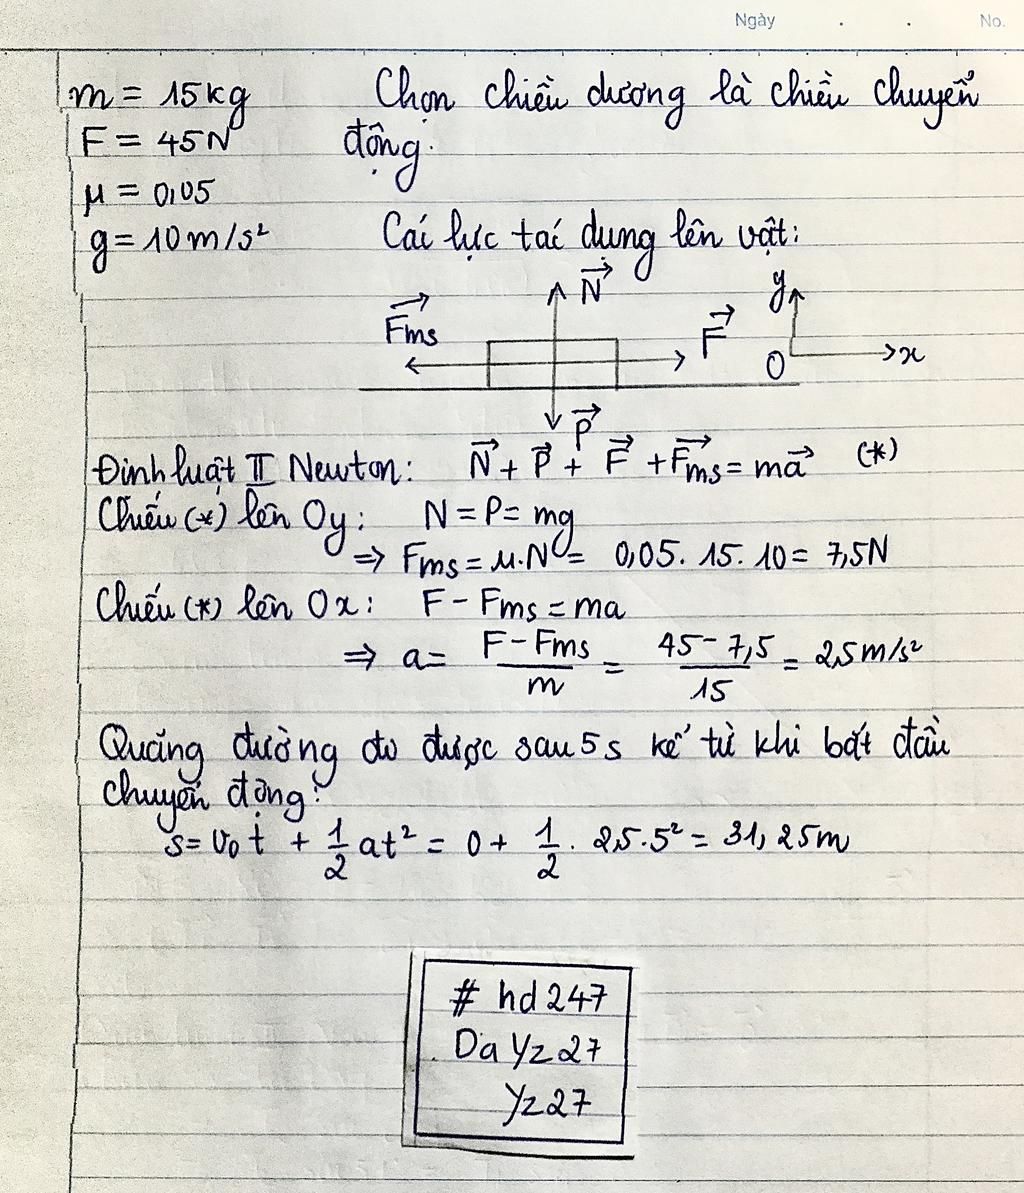 Ngày . . No.
m = 15kg Chọn chiều dương là chiều chuyển
F = 45N động.
μ = 0,05
g = 10m/s² Các lực tác dụng lên vật:
N⃗ y
F⃗ms F⃗
O x
P⃗
Định luật II Newton: N⃗ + P⃗ + F⃗ + F⃗ms = ma⃗ (*)
Chiếu (*) lên Oy: N = P = mg
⇒ Fms = μ.N = 0,05. 15. 10 = 7,5N
Chiếu (*) lên Ox: F - Fms = ma
⇒ a = (F - Fms)/m = (45 - 7,5)/15 = 2,5m/s²
Quãng đường đi được sau 5s kể từ khi bắt đầu
chuyển động:
s = v₀t + 1/2 at² = 0 + 1/2 . 2,5.5² = 31,25m
# hd247
Da Yz27
Yz27